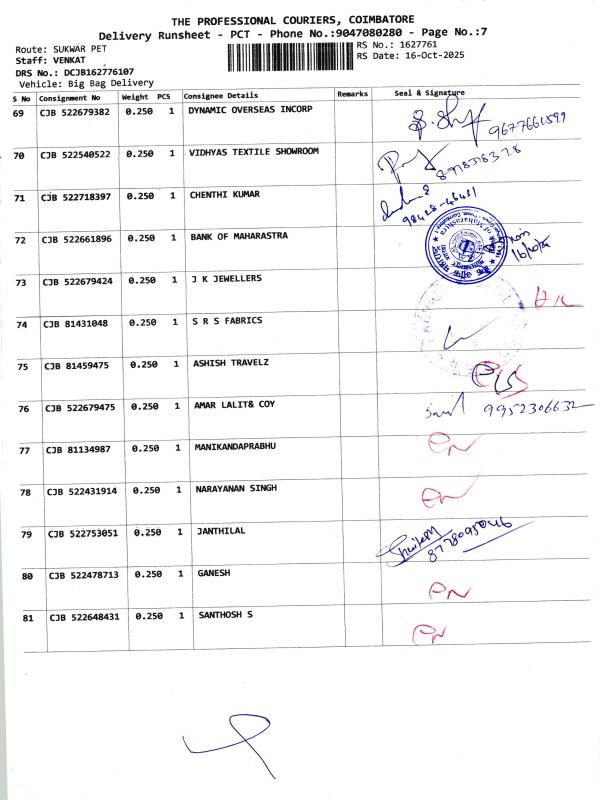 THE PROFESSIONAL COURIERS, COIMBATORE
Delivery Runsheet - PCT - Phone No.:9047080280 - Page No.:7
Route: SUKWAR PET
RS No.: 1627761
Staff: VENKAT
RS Date: 16-Oct-2025
DRS No.: DCJB162776107
Vehicle: Big Bag Delivery
S No Consignment No Weight PCS Consignee Details Remarks Seal & Signature
69 CJB 522679382 0.250 1 DYNAMIC OVERSEAS INCORP 9677661599
70 CJB 522540522 0.250 1 VIDHYAS TEXTILE SHOWROOM
71 CJB 522718397 0.250 1 CHENTHI KUMAR 98428-46411
72 CJB 522661896 0.250 1 BANK OF MAHARASTRA
73 CJB 522679424 0.250 1 J K JEWELLERS
74 CJB 81431048 0.250 1 S R S FABRICS
75 CJB 81459475 0.250 1 ASHISH TRAVELZ
76 CJB 522679475 0.250 1 AMAR LALIT& COY 9952306632
77 CJB 81134987 0.250 1 MANIKANDAPRABHU
78 CJB 522431914 0.250 1 NARAYANAN SINGH
79 CJB 522753051 0.250 1 JANTHILAL
80 CJB 522478713 0.250 1 GANESH
81 CJB 522648431 0.250 1 SANTHOSH S